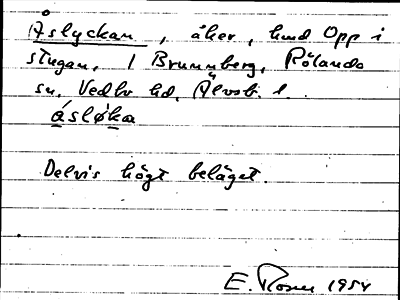 Åslyckan, åker, hmd Opp i
stugan, 1 Brunnberg, Rölanda
sn, Vedbo hd, Älvsb. l.
ásløka
Delvis högt beläget.
E. Rosen 1954